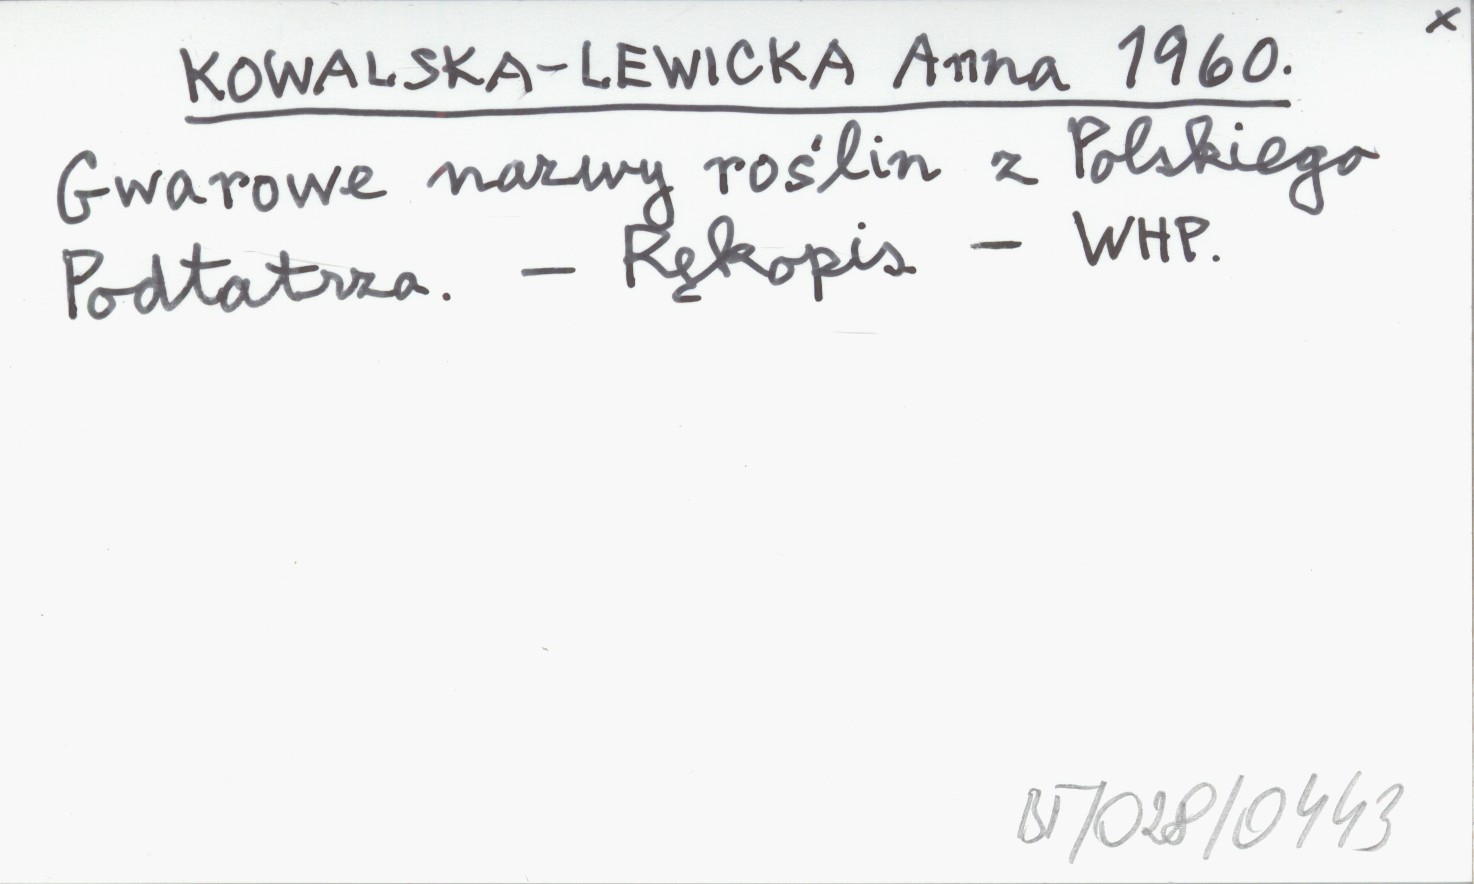 x
KOWALSKA-LEWICKA Anna 1960.
Gwarowe nazwy roślin z Polskiego
Podtatrza. — Rękopis — WHP.
BT/028/0443